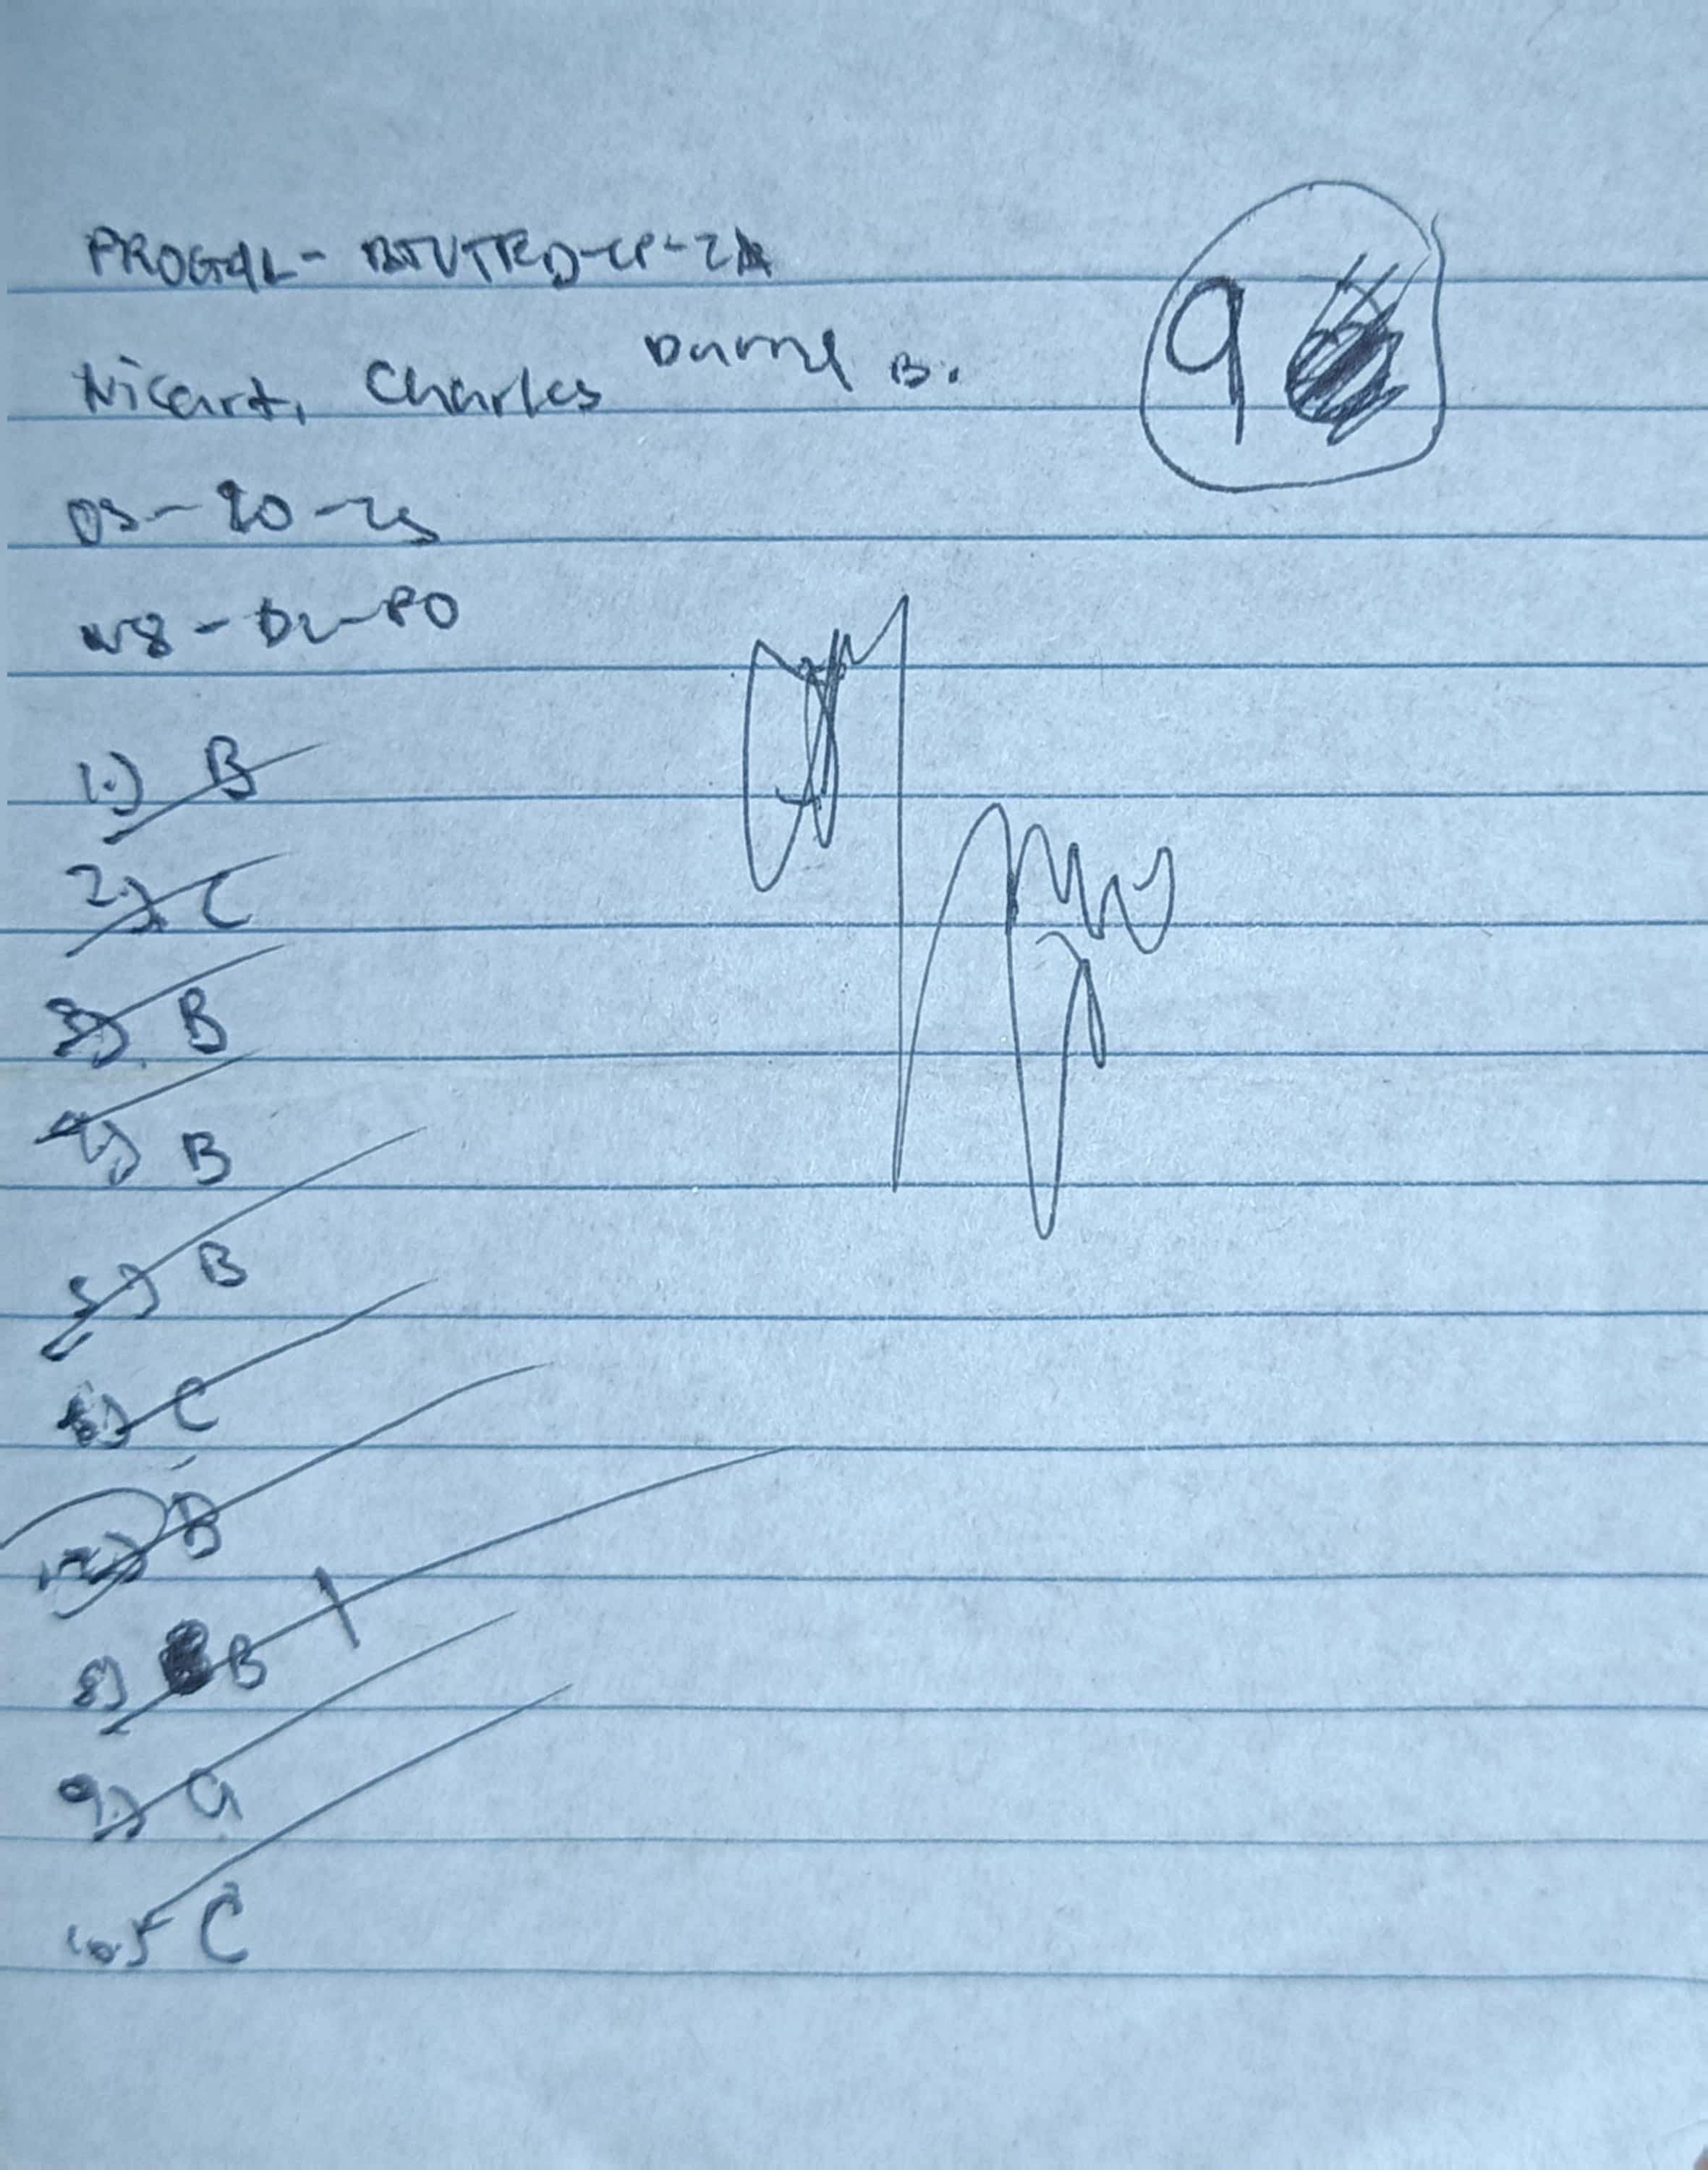 PROG4L - BTVTED-CP-2A
Nicart, Charles Darryl B.
9
03-20-25
W8 - D2 - PO
1.) B
2.) C
3.) B
4.) B
5.) B
6.) C
7.) B
8.) B
9.) a
10.) C